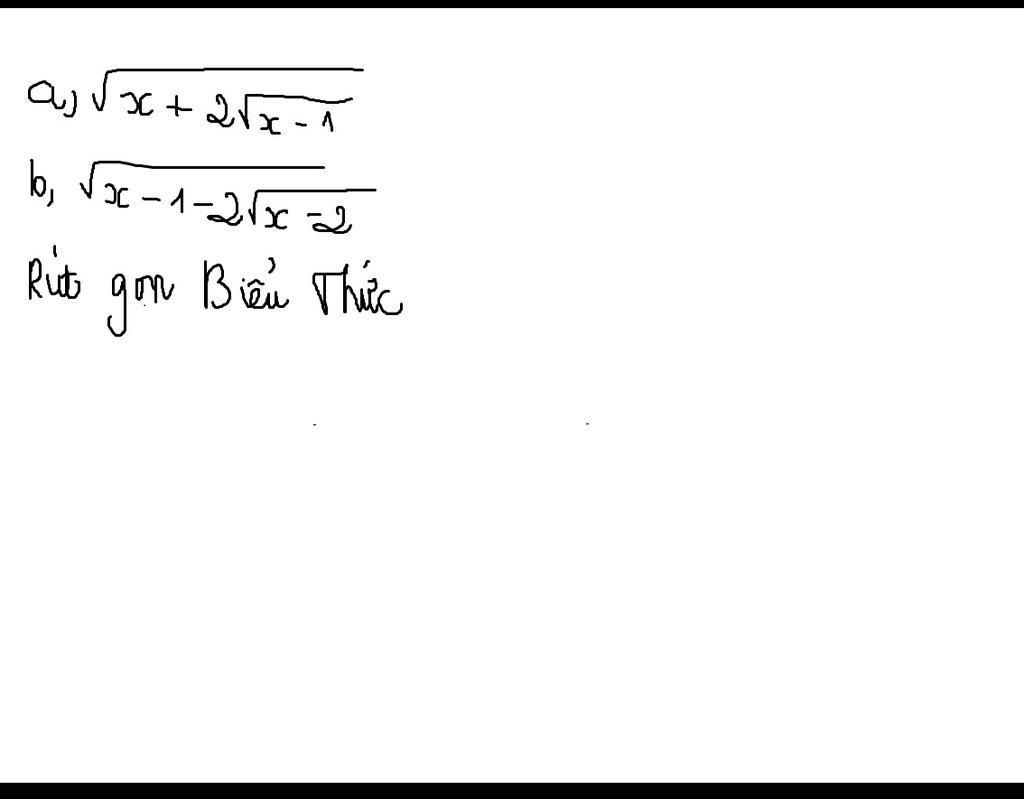 a, √(x + 2√(x - 1))
b, √(x - 1 - 2√(x - 2))
Rút gọn Biểu Thức